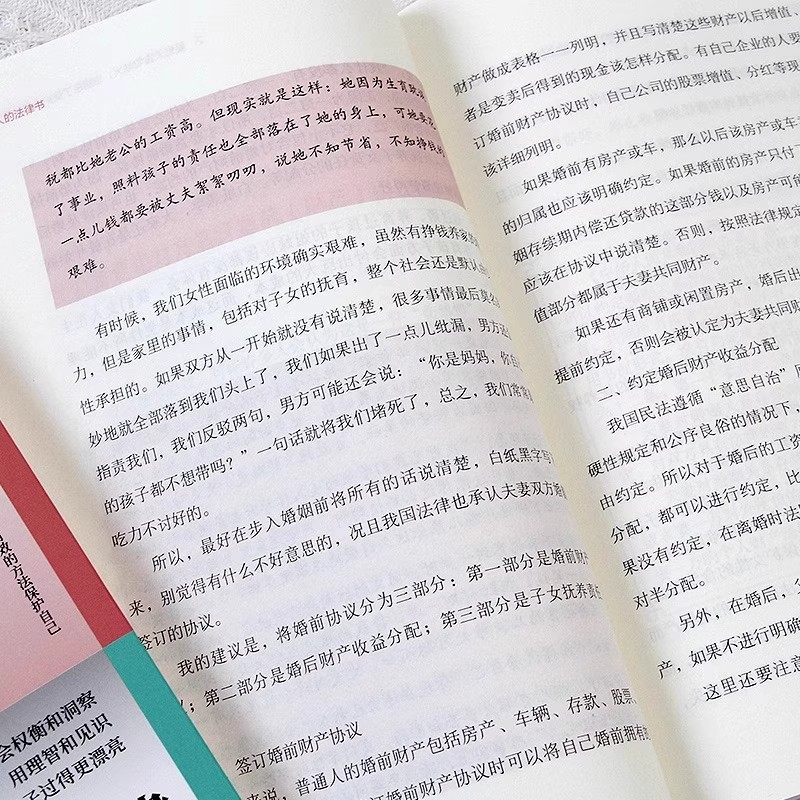 人的法律书
税都比她老公的工资高。但现实就是这样：她因为生育耽误
了事业，照料孩子的责任也全部落在了她的身上，可她要花
一点儿钱都要被丈夫絮絮叨叨，说她不知节省，不知挣钱的
艰难。
有时候，我们女性面临的环境确实艰难，虽然有挣钱养家的
力，但是家里的事情，包括对子女的抚育，整个社会还是默认由
性承担的。如果双方从一开始就没有说清楚，很多事情最后莫名
妙地就全部落到我们头上了，我们如果出了一点儿纰漏，男方还
指责我们，我们反驳两句，男方可能还会说：“你是妈妈，你自
的孩子都不想带吗？”一句话就将我们堵死了，总之，我们常常
吃力不讨好的。
所以，最好在步入婚姻前将所有的话说清楚，白纸黑字写
来，别觉得有什么不好意思的，况且我国法律也承认夫妻双方婚前
签订的协议。
我的建议是，将婚前协议分为三部分：第一部分是婚前财产
；第二部分是婚后财产收益分配；第三部分是子女抚养责任
签订婚前财产协议
来说，普通人的婚前财产包括房产、车辆、存款、股票
订婚前财产协议时可以将自己婚前拥有的
财产做成表格一一列明，并且写清楚这些财产以后增值、
者是变卖后得到的现金该怎样分配。有自己企业的人要
订婚前财产协议时，自己公司的股票增值、分红等现
该详细列明。
如果婚前有房产或车，那么以后该房产或车
的归属也应该明确约定。如果婚前的房产只付了
姻存续期内偿还贷款的这部分钱以及房产可能
应该在协议中说清楚。否则，按照法律规定
值部分都属于夫妻共同财产。
如果还有商铺或闲置房产，婚后出
提前约定，否则会被认定为夫妻共同财
二、约定婚后财产收益分配
我国民法遵循“意思自治”原
硬性规定和公序良俗的情况下，
由约定。所以对于婚后的工资
分配，都可以进行约定，比
果没有约定，在离婚时法
对半分配。
另外，在婚后，
产，如果不进行明确
这里还要注意
效的方法保护自己
会权衡和洞察
用理智和见识
子过得更漂亮